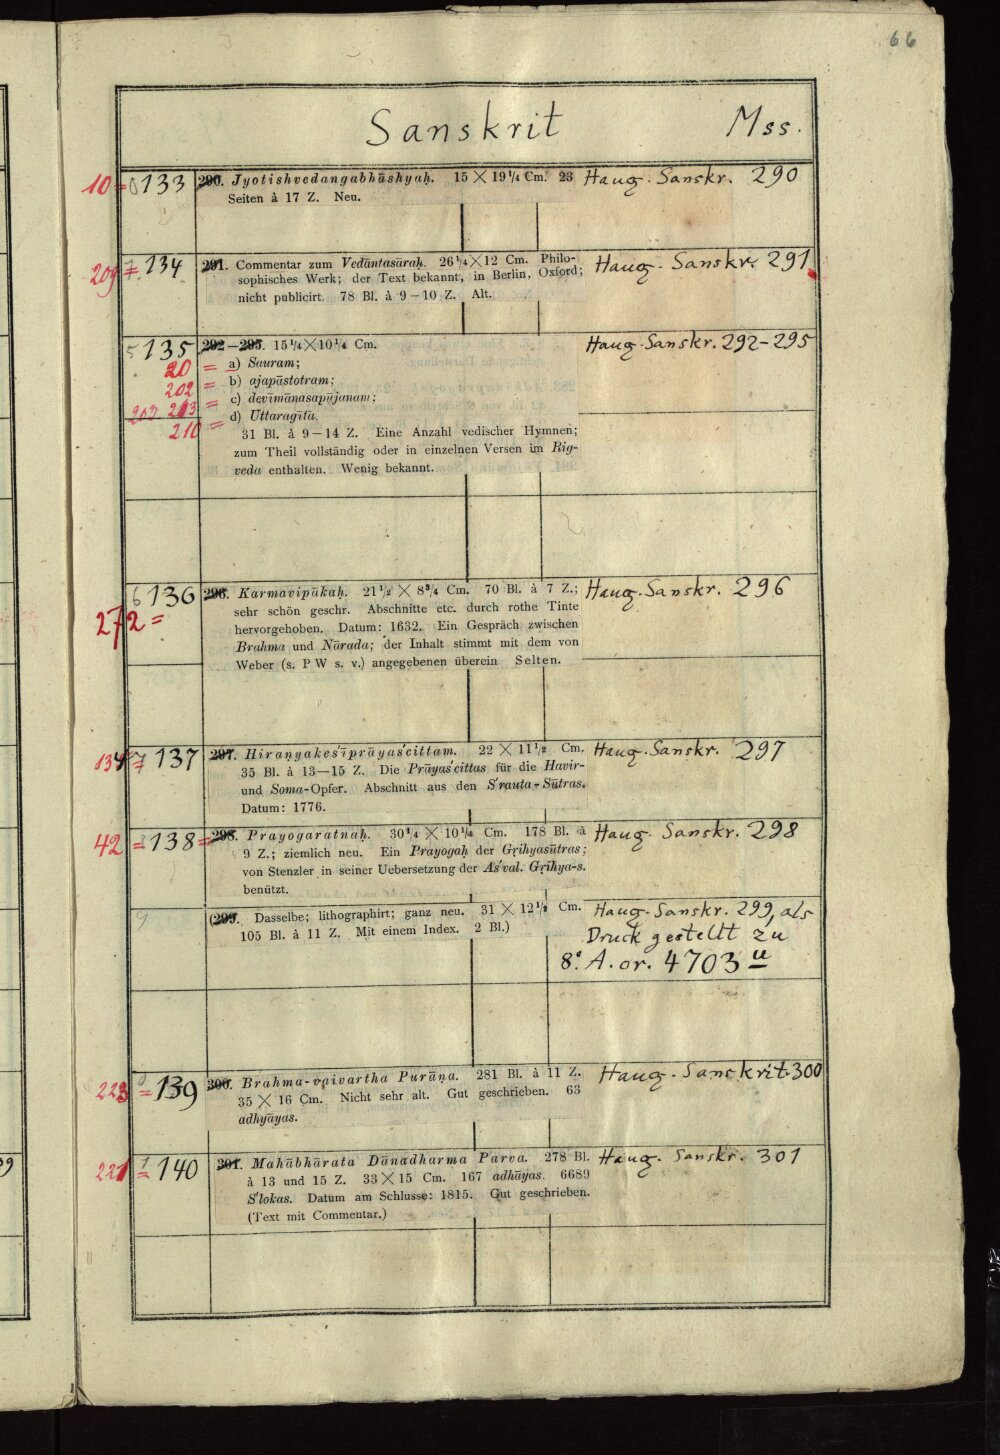 66
Sanskrit Mss.
10 = 133 290. Jyotishvedangabhāshyaḥ. 15 × 19 1/4 Cm. 23 Haug. Sanskr. 290
Seiten à 17 Z. Neu.
209 = 134 291. Commentar zum Vedāntasāraḥ. 26 1/4 × 12 Cm. Philo- Haug. Sanskr. 291
sophisches Werk; der Text bekannt, in Berlin, Oxford;
nicht publicirt. 78 Bl. à 9–10 Z. Alt.
5 135 292–295. 15 1/4 × 10 1/4 Cm. Haug. Sanskr. 292–295
20 = a) Sauram;
202 = b) ajapāstotram;
203 213 = c) devīmānasapūjanam;
210 = d) Uttaragītā.
31 Bl. à 9–14 Z. Eine Anzahl vedischer Hymnen;
zum Theil vollständig oder in einzelnen Versen im Rig-
veda enthalten. Wenig bekannt.
6 136 296. Karmavipākaḥ. 21 1/2 × 8 3/4 Cm. 70 Bl. à 7 Z.; Haug. Sanskr. 296
272 = sehr schön geschr. Abschnitte etc. durch rothe Tinte
hervorgehoben. Datum: 1632. Ein Gespräch zwischen
Brahma und Nārada; der Inhalt stimmt mit dem von
Weber (s. P W s. v.) angegebenen überein Selten.
134 = 137 297. Hiraṇyakeśīprāyaścittam. 22 × 11 1/2 Cm. Haug. Sanskr. 297
35 Bl. à 13—15 Z. Die Prāyaścittas für die Havir-
und Soma-Opfer. Abschnitt aus den Śrauta-Sūtras.
Datum: 1776.
42 = 138 = 298. Prayogaratnaḥ. 30 1/4 × 10 1/4 Cm. 178 Bl. à Haug. Sanskr. 298
9 Z.; ziemlich neu. Ein Prayogaḥ der Gṛihyasūtras;
von Stenzler in seiner Uebersetzung der Aśval. Gṛihya-s.
benützt.
9 (299. Dasselbe; lithographirt; ganz neu. 31 × 12 1/2 Cm. Haug. Sanskr. 299, als
105 Bl. à 11 Z. Mit einem Index. 2 Bl.) Druck gestellt zu
8° A. or. 4703 u
223 = 139 300. Brahma-vaivartha Purāṇa. 281 Bl. à 11 Z. Haug. Sanskrit. 300
35 × 16 Cm. Nicht sehr alt. Gut geschrieben. 63
adhyāyas.
221 = 140 301. Mahābhārata Dānadharma Parva. 278 Bl. Haug. Sanskr. 301
à 13 und 15 Z. 33 × 15 Cm. 167 adhāyas. 6689
Ślokas. Datum am Schlusse: 1815. Gut geschrieben.
(Text mit Commentar.)